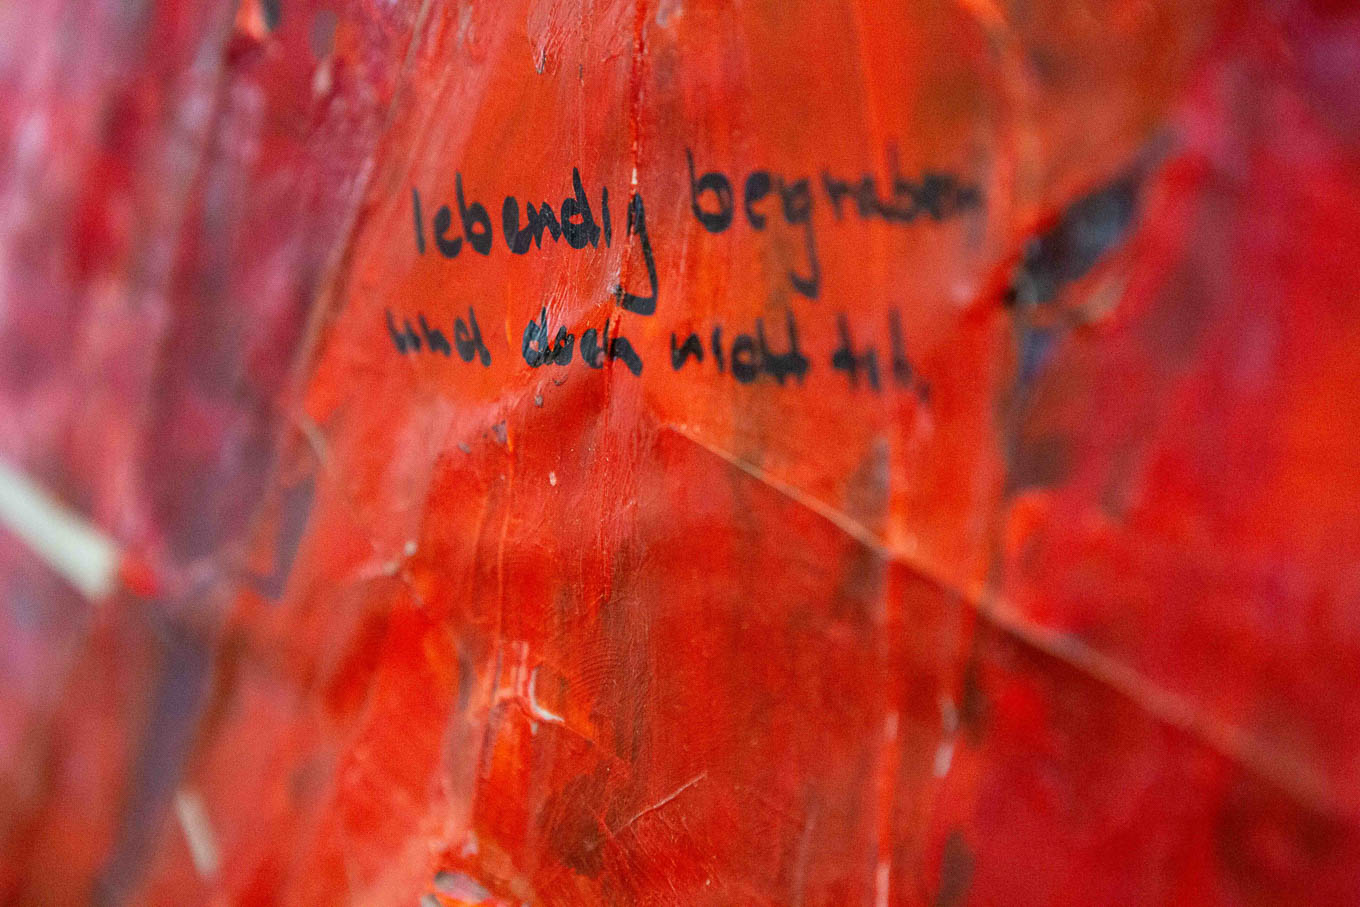 lebendig begraben
und doch nicht tot.